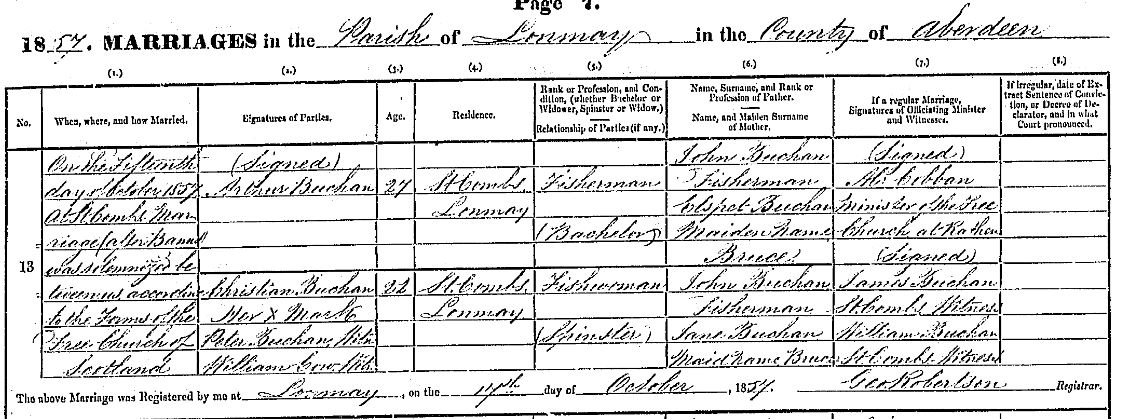 Page 7.
1857. MARRIAGES in the Parish of Lonmay in the County of Aberdeen
(1.) (2.) (3.) (4.) (5.) (6.) (7.) (8.)
No.
When, where, and how Married.
Signatures of Parties.
Age.
Residence.
Rank or Profession, and Con-
dition, (whether Bachelor or
Widower, Spinster or Widow.)
Relationship of Parties (if any.)
Name, Surname, and Rank or
Profession of Father.
Name, and Maiden Surname
of Mother.
If a regular Marriage,
Signatures of Officiating Minister
and Witnesses.
If irregular, date of Ex-
tract Sentence of Convic-
tion, or Decree of De-
clarator, and in what
Court pronounced.
13
On the Fifteenth
day of October 1857
At St Combs Mar
riage (after Banns)
was solemnized be
tween us according
to the Forms of the
Free Church of
Scotland
(Signed)
Arthur Buchan
Christian Buchan
Her X Mark
Peter Buchan, Witn
William Cow, Wit.
27
22
St Combs
Lonmay
St. Combs
Lonmay
Fisherman
(Bachelor)
Fishwoman
(Spinster)
John Buchan
Fisherman
Elspet Buchan
Maiden Name
Bruce
John Buchan
Fisherman
Jane Buchan
Maid Name Bruce
(Signed)
Cobban
Minister of the Free
Church at Rathen
(Signed)
James Buchan
St Combs Witness
William Buchan
St Combs Witness
The above Marriage was Registered by me at Lonmay, on the 17th day of October, 1857. Geo Robertson Registrar.